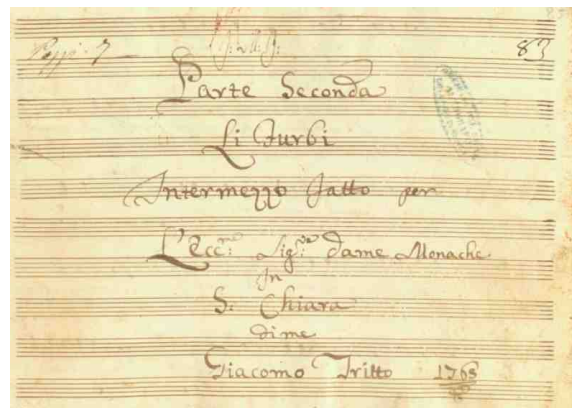 83
Parte Seconda
Li Furbi
Intermezzo Fatto per
L'Ecc.me Sig.re Dame Monache
In
S. Chiara
di me
Giacomo Tritto 1765